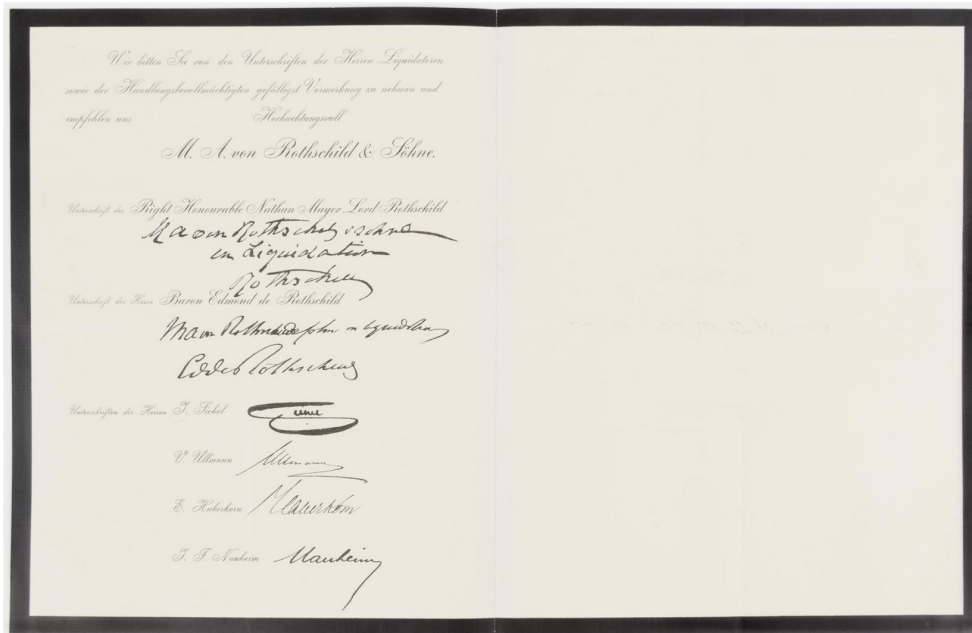 Wir bitten Sie von den Unterschriften der Herren Liquidatoren
sowie der Handlungsbevollmächtigten gefälligst Vormerkung zu nehmen und
empfehlen uns Hochachtungsvoll
M. A. von Rothschild & Söhne.
Unterschrift des Right Honourable Nathan Mayer Lord Rothschild
M A von Rothschild & Söhne
in Liquidation
Rothschild
Unterschrift des Herrn Baron Edmond de Rothschild
M A von Rothschild & Söhne in Liquidation
Ed de Rothschild
Unterschriften der Herren I. Sichel
V. Ullmann Ullmann
E. Haberkorn Haberkorn
J. F. Nauheim Nauheim